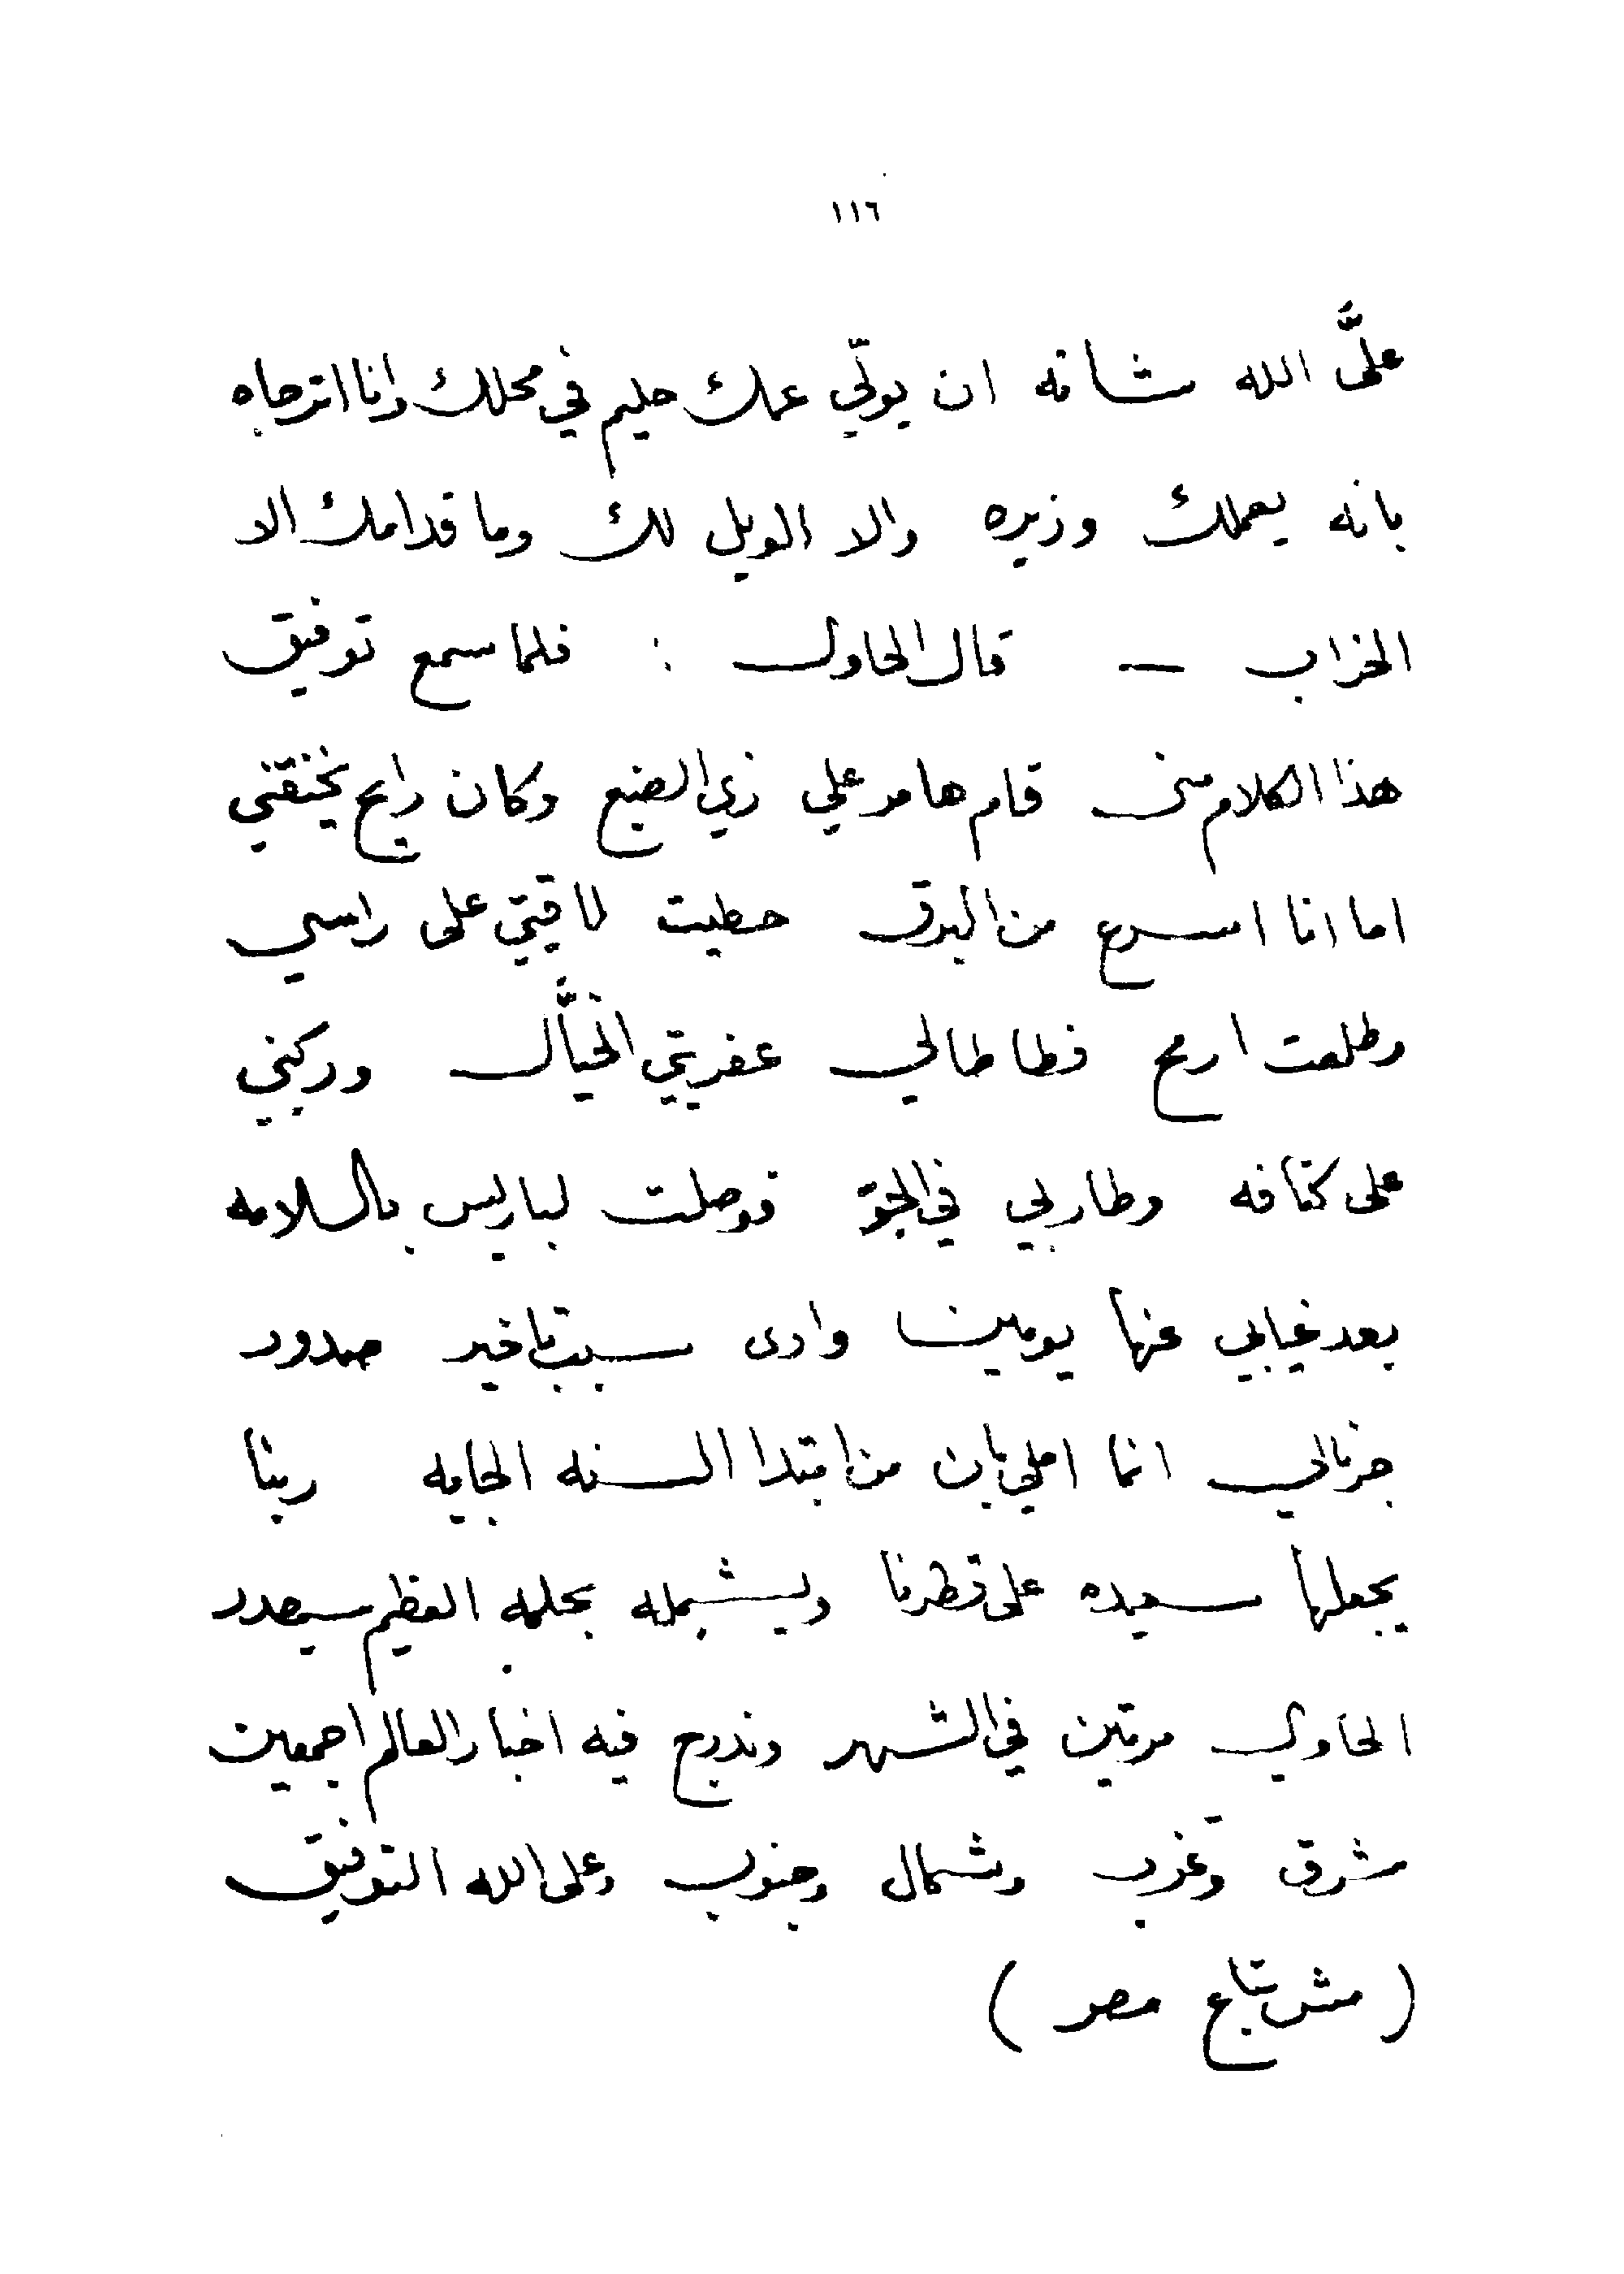 ١١٦
علَّى الله شانه ان يولّي عمك حليم في محلك وانا اترجاه
بانه يعملك وزيره والا الويل لك وما قدامك الا
الخراب — قال الحاوي : فلما سمع توفيق
هذا الكلام مني قام هامر علي زي الضبع وكان رايح يخنقني
اما انا اسرع من البرق حطيت لاقيتي على راسي
وطلعت ارمح فطاطا لي عفريتي الخيَّال وركبني
على كتافه وطار بي في الجوّ فوصلت لباريس بالسلامه
بعد غيابي عنها يومين وادى سبب تاخير صدور
جرنالي انما املي بان من ابتدا السنه الجايه ربنا
يجعلها سعيده على قطرنا ويشمله بحلمه العظيم سيصدر
الحاوي مرتين في الشهر وندرج فيه اخبار العالم اجمعين
شرق وغرب وشمال وجنوب وعلى الله التوفيق
( مش بتاع مصر )